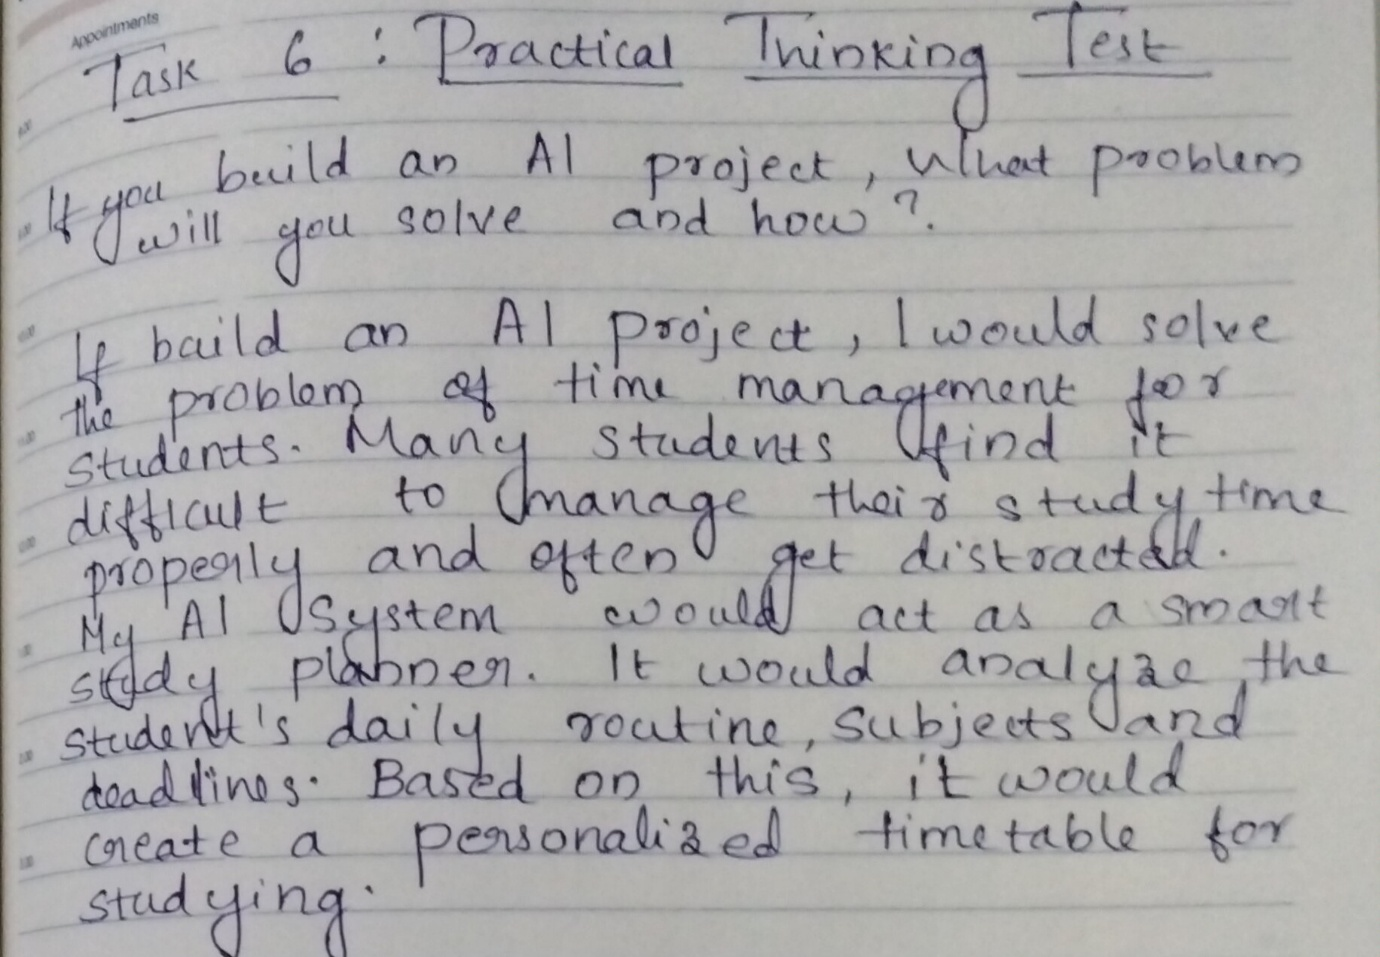 Appointments
Task 6 : Practical Thinking Test
If you build an AI project, What problem
will you solve and how?.
If build an AI project, I would solve
the problem of time management for
students. Many students find it
difficult to manage their study time
properly and often get distracted.
My AI System would act as a smart
study planner. It would analyze the
student's daily routine, subjects and
deadlines. Based on this, it would
create a personalized timetable for
studying.